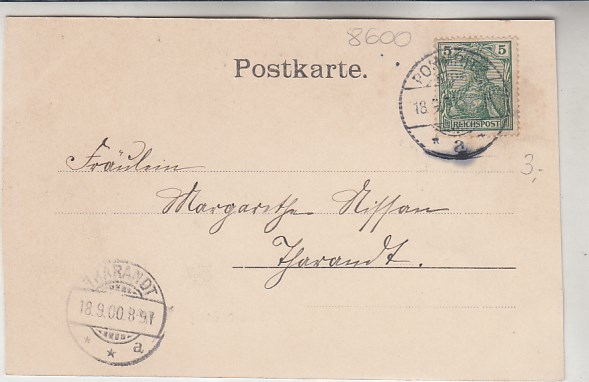 8600
Postkarte.
5
REICHSPOST
18.9
a
Fräulein
Margarethe Nissan
Tharandt.
3,-
THARANDT
18.9.00.8-9V
* * a